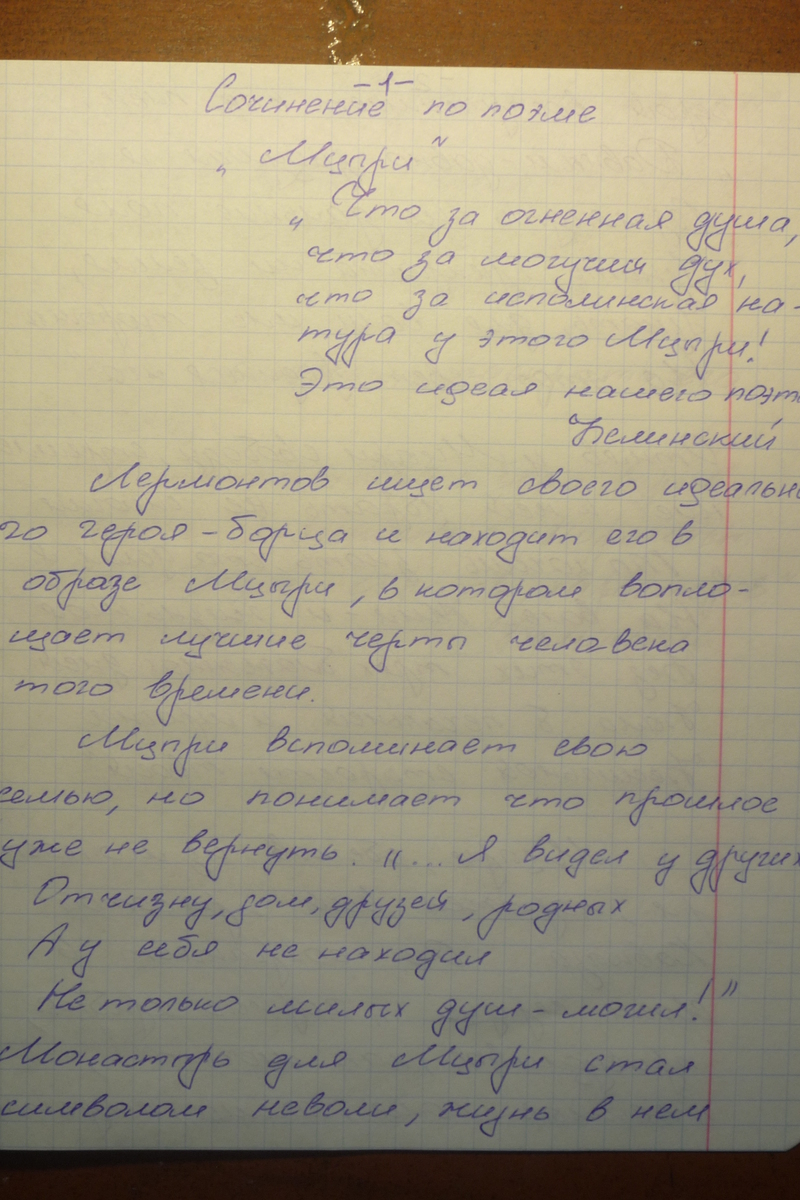 -1-
Сочинение по поэме
„ Мцыри "
„ Что за огненная душа,
что за могучий дух,
что за исполинская на-
тура у этого Мцыри!
Это идеал нашего поэта
Белинский
Лермонтов ищет своего идеально
го героя-борца и находит его в
образе Мцыри, в котором вопло-
щает лучшие черты человека
того времени.
Мцыри вспоминает свою
семью, но понимает что прошлое
уже не вернуть. „... Я видел у других
Отчизну, дом, друзей, родных
А у себя не находил
Не только милых душ - могил!"
Монастырь для Мцыри стал
символом неволи, жизнь в нем